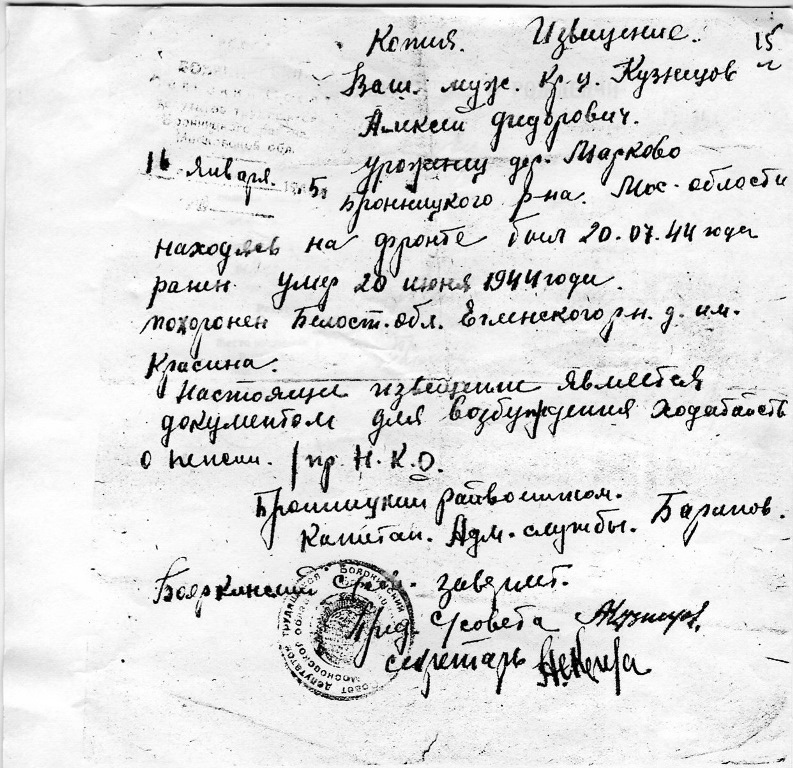 Копия. Извещение. 15
Ваш муж. Кр-ц. Кузнецов
Алексей Федорович.
16 Января. 5. урожениц дер. Марково
Бронницкого р-на. Мос. области
находясь на фронте был 20.07.44 года
ранен умер 20 июня 1944 годи.
похоронен Белост. обл. рн. д. им.
Красина.
Настоящие извещение является
документом для возбуждения ходатайств
о пенсии. /пр. Н.К.О.
Бронницкий райвоенком.
Капитан. Адм. службы. Баранов.
Бояркинский заверяет.
Пред. с/совета
секретарь
Бояркинский
Совет депутатов трудящихся
Московской области